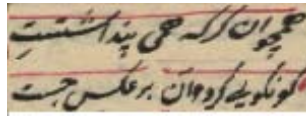 همچو آن کرکه همی پنداشتست
کو نکویی کرد و آن بر عکس جست